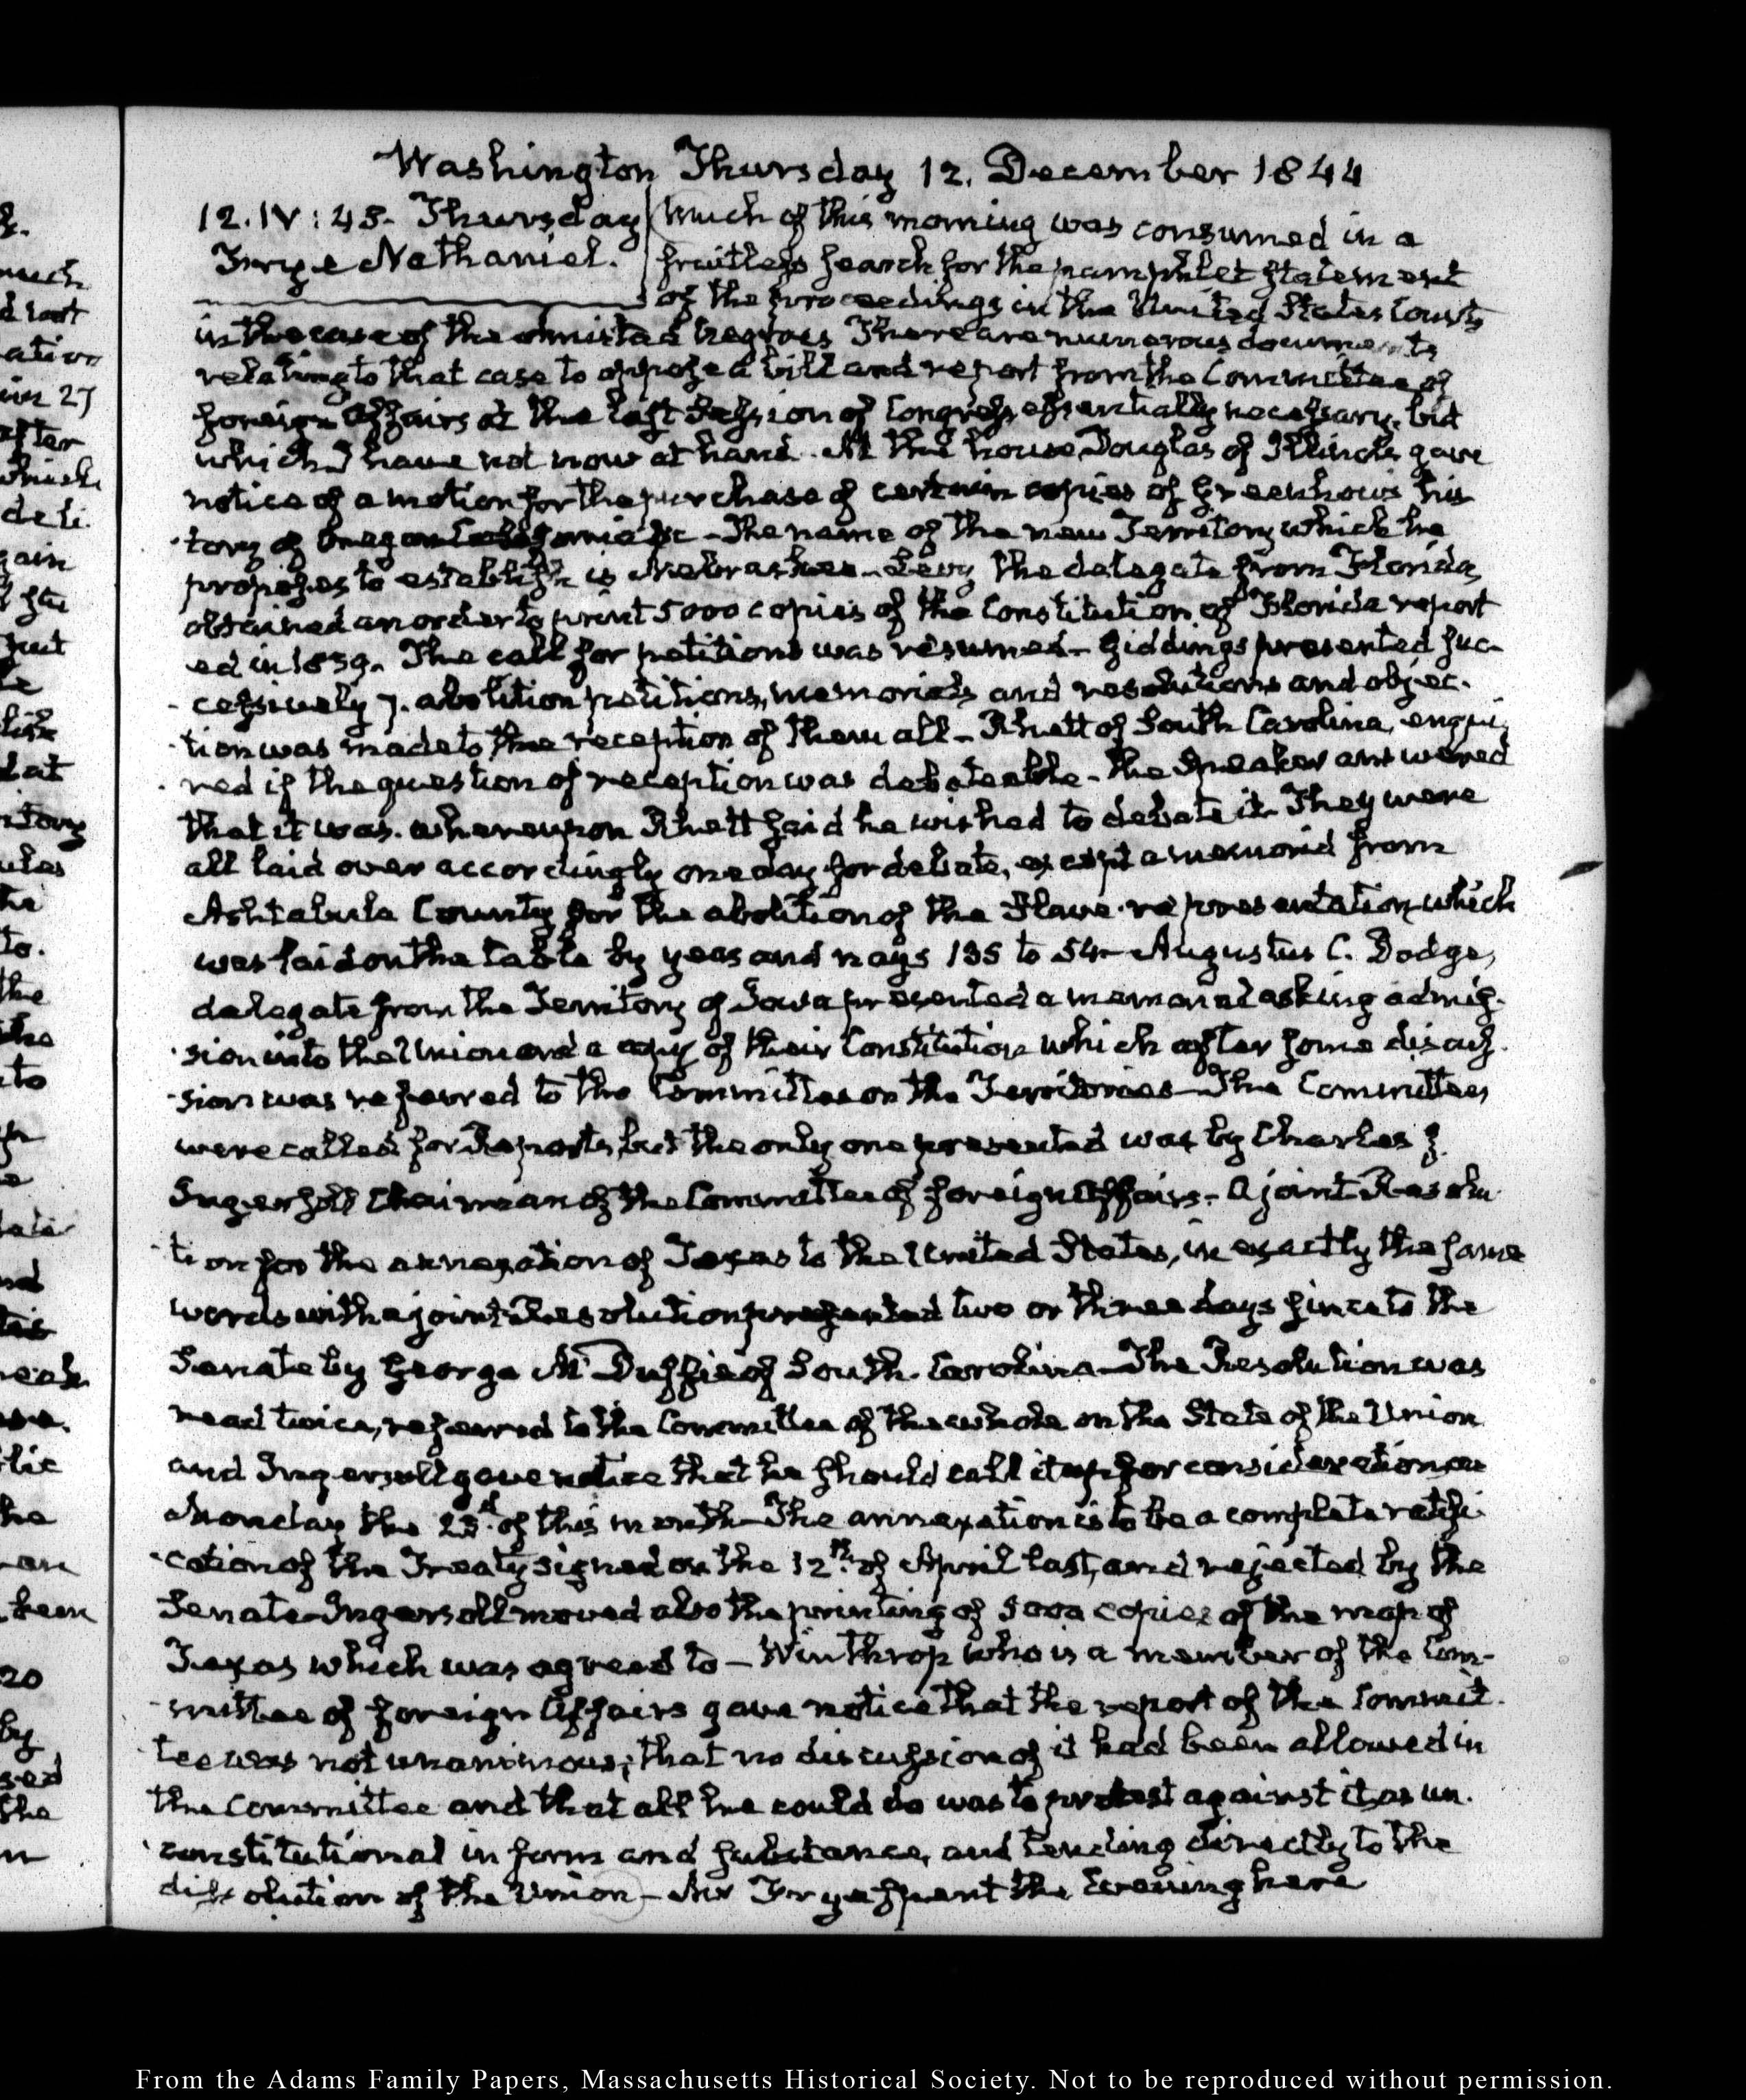 Washington Thursday 12. December 1844
12. IV: 45. Thursday
Frye Nathaniel.
Much of this morning was consumed in a
fruitless search for the pamphlet statement
of the proceedings in the United States Courts
in the case of the Amistad negroes There are numerous documents
relating to that case to oppose a bill and report from the Committee of
foreign Affairs at the last Session of Congress essentially necessary, but
which I have not now at hand. At the house Douglas of Illinois gave
notice of a motion for the purchase of certain copies of Greenhow's his
tory of Oregon California &c - The name of the new Territory which he
proposes to establish is Nebraska - Levy the delegate from Florida
obtained an order to print 5000 copies of the Constitution of Florida report
ed in 1839. The call for petitions was resumed - Giddings presented suc-
cessively 7. abolition petitions, memorials and resolutions and objec-
tion was made to the reception of them all - Rhett of South Carolina, enqui
red if the question of reception was debateable - the Speaker answered
that it was. whereupon Rhett said he wished to debate it. They were
all laid over accordingly one day for debate, except a memorial from
Ashtabula County for the abolition of the Slave representation which
was laid on the table by yeas and nays 135 to 54 - Augustus C. Dodge,
delegate from the Territory of Iowa presented a memorial asking admis-
sion into the Union and a copy of their Constitution which after some discus-
sion was referred to the Committee on the Territories - The Committees
were called for Reports, but the only one presented was by Charles J.
Ingersoll Chairman of the Committee of foreign Affairs - A joint Resolu
tion for the annexation of Texas to the United States, in exactly the same
words with a joint Resolution presented two or three days since to the
Senate by George McDuffie of South-Carolina - The Resolution was
read twice, referred to the Committee of the whole on the State of the Union
and Ingersoll gave notice that he should call it up for consideration on
Monday the 23d. of this month - The annexation is to be a complete ratifi-
cation of the Treaty signed on the 12th. of April last, and rejected by the
Senate - Ingersoll moved also the printing of 5000 copies of the map of
Texas which was agreed to - Winthrop who is a member of the Com-
mittee of foreign Affairs gave notice that the report of the Commit-
tee was not unanimous; that no discussion of it had been allowed in
the Committee and that all he could do was to protest against it as un-
constitutional in form and substance, and tending directly to the
dissolution of the Union - Mr Frye spent the Evening here
From the Adams Family Papers, Massachusetts Historical Society. Not to be reproduced without permission.